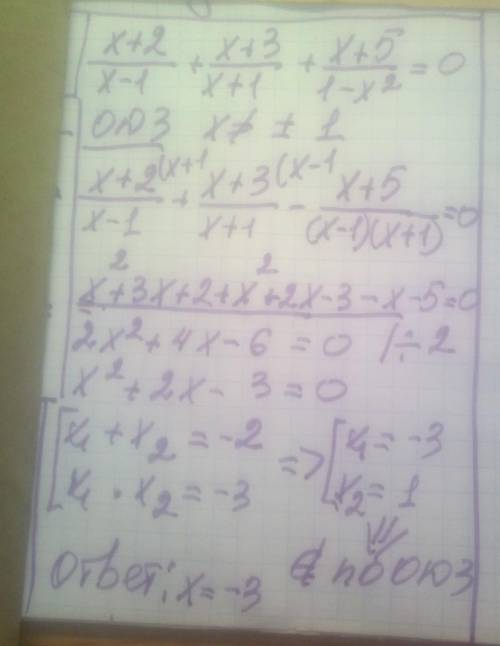 x+2/x-1 + x+3/x+1 + x+5/1-x² = 0
ОЮЗ x≠ ± 1
x+2(x+1/x-1 + x+3(x-1/x+1 - x+5/(x-1)(x+1) =0
x²+3x+2+x²+2x-3-x-5=0
2x²+4x-6 = 0 /÷2
x²+2x-3=0
[x₁+x₂=-2 => [x₁=-3
x₁·x₂=-3 x₂=1
Ответ: x=-3 ∉ по ОЮЗ